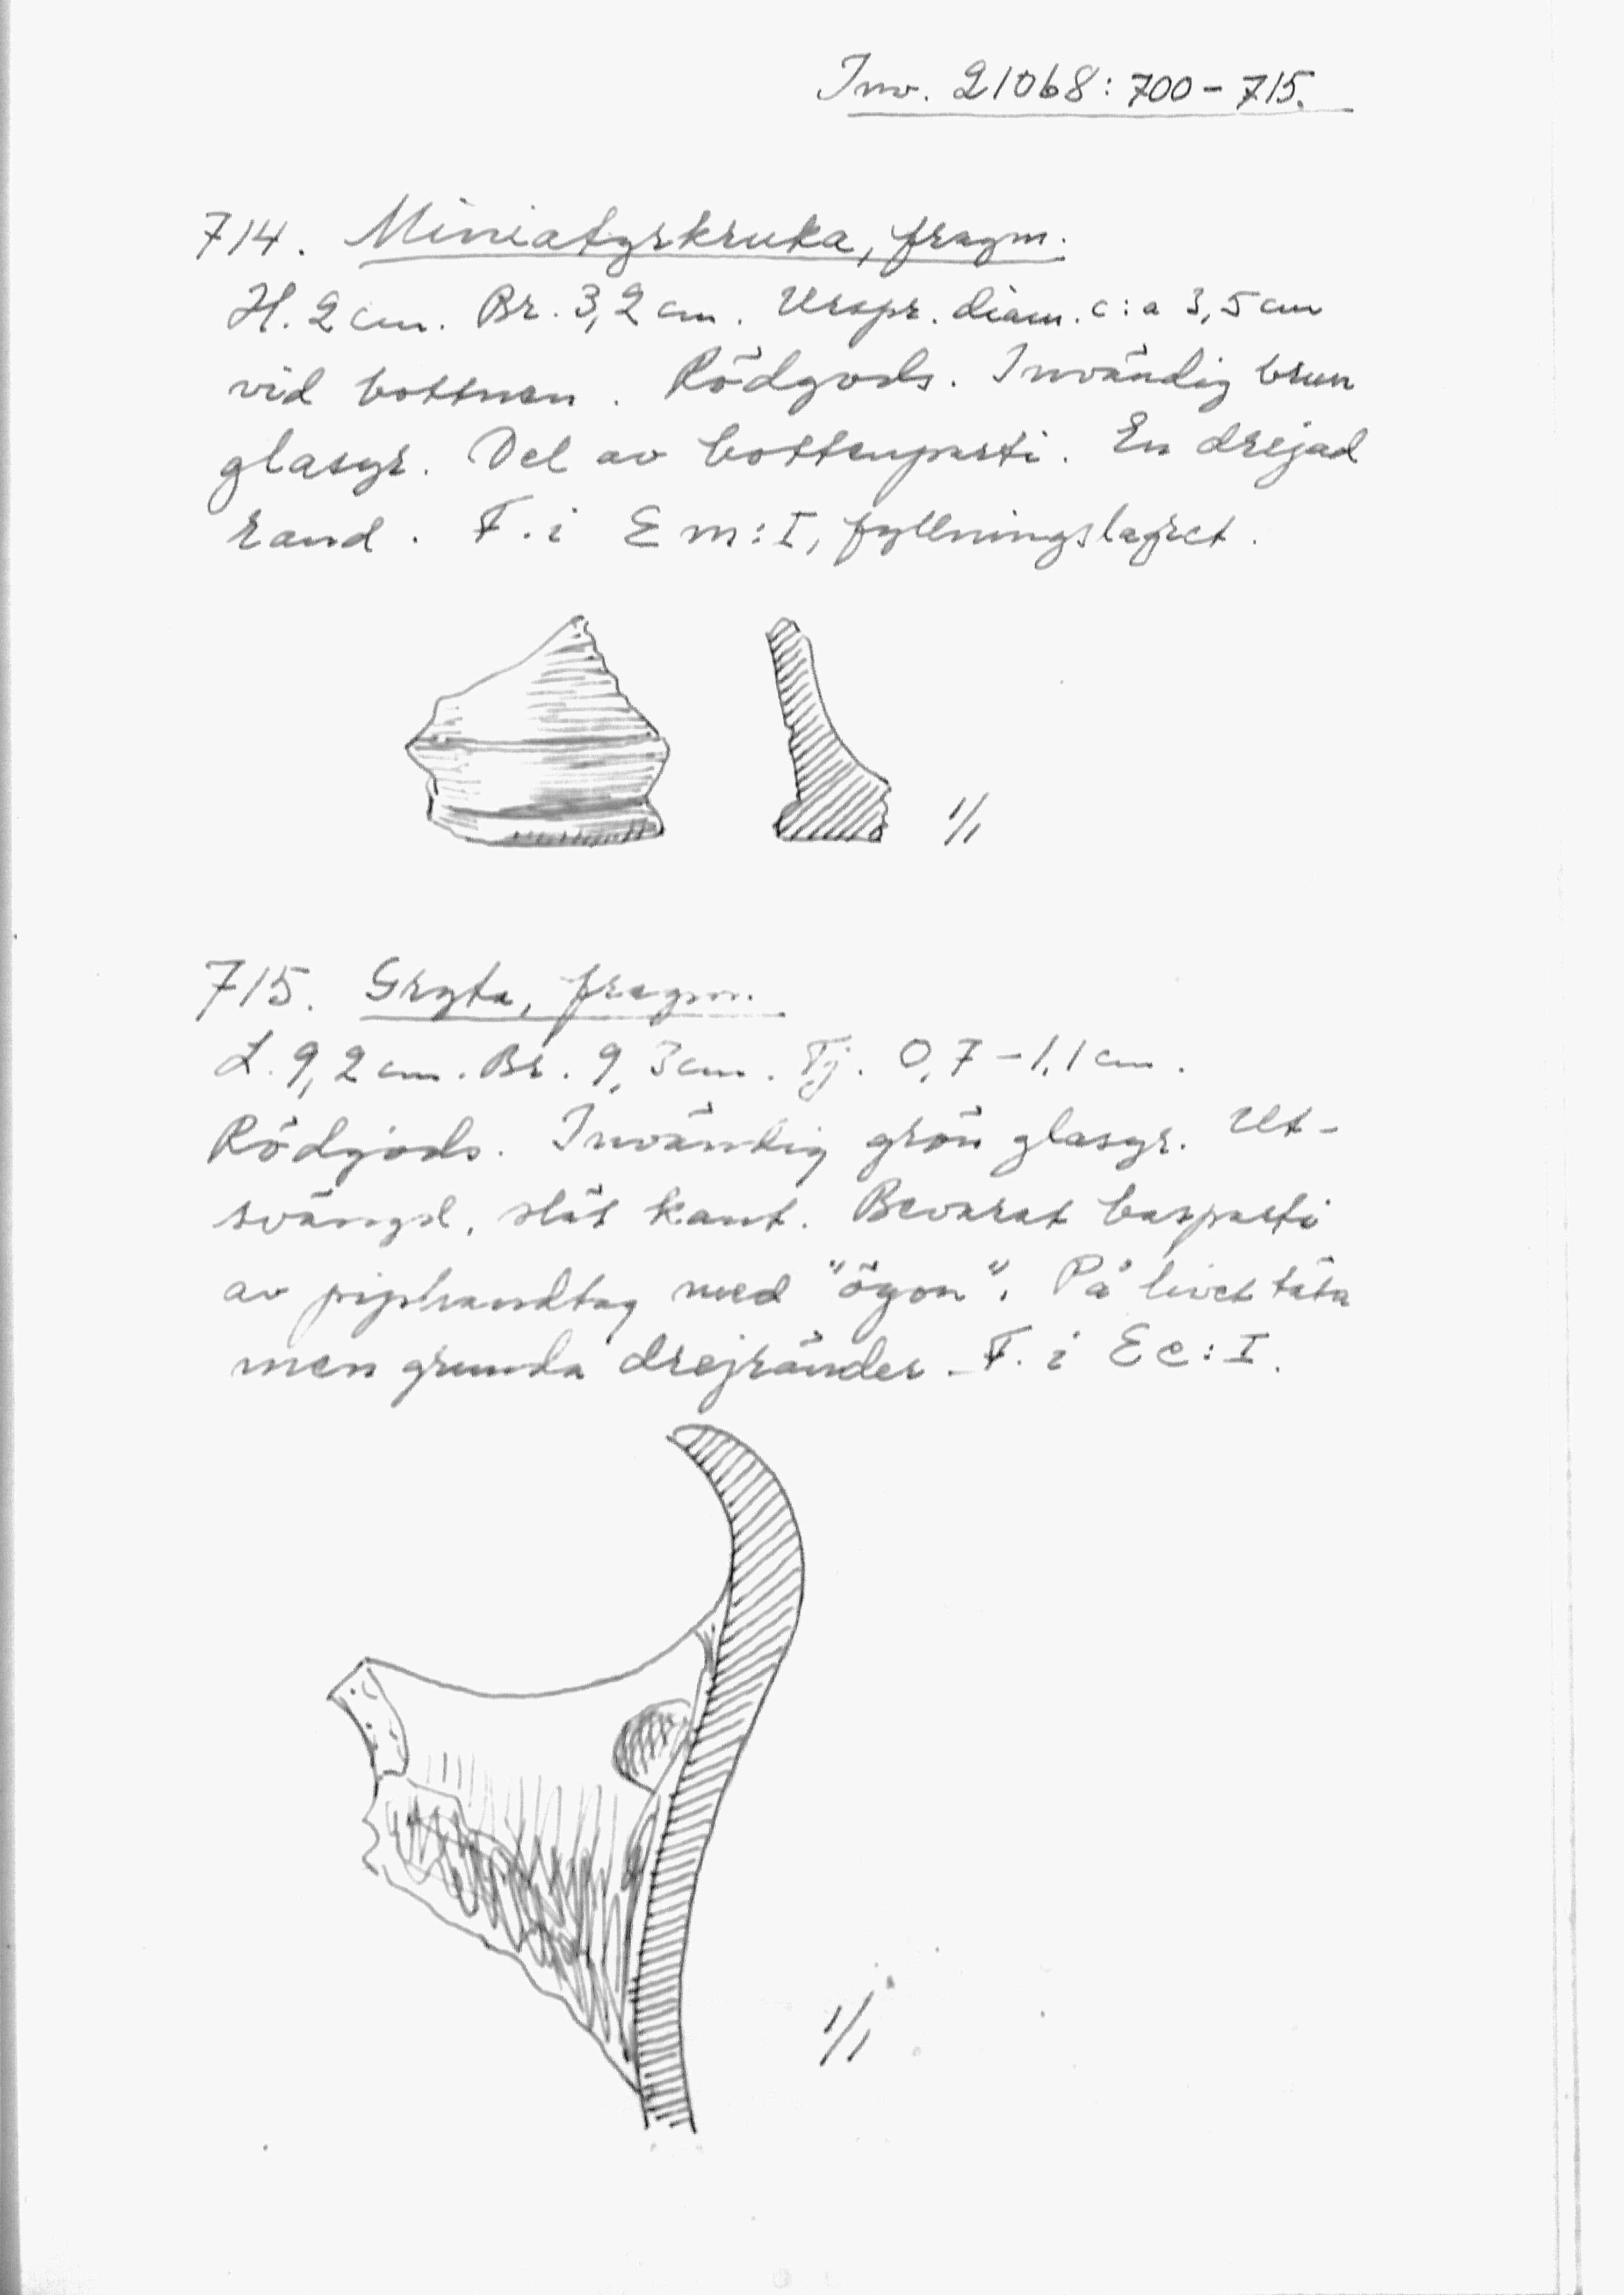 Inv. 21068:700-715.
714. Miniatyrkruka, fragm.
H. 2 cm. Br. 3,2 cm. Urspr. diam. c:a 3,5 cm
vid bottnen. Rödgods. Invändig brun
glasyr. Del av bottenparti. En drejad
rand. F. i Em:I, fyllningslagret.
1/1
715. Gryta, fragm.
L. 9,2 cm. Br. 9,3 cm. Tj. 0,7-1,1 cm.
Rödgods. Invändig grön glasyr. Ut-
svängd, slät kant. Bevarat basparti
av piphandtag med "ögon". På livet täta
men grunda drejränder. F. i Ec:I.
1/1